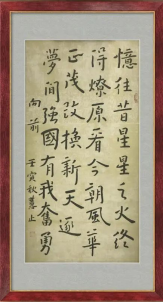 憶往昔星星之火终
得燎原看今朝風華
正茂改換新天逐
夢間強國有我奮勇
向前
壬寅秋慧止